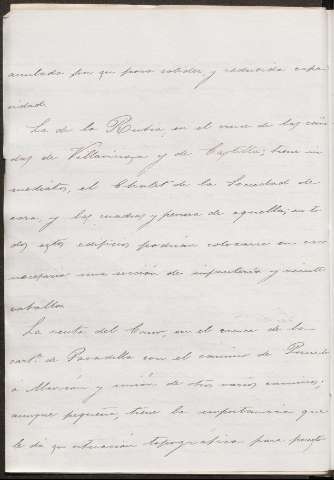 anulada por su poca solidez y reducida capa-
cidad.
La de la Rubia, en el cruce de las caña-
das de Villavieja y de Castilla; tiene in-
mediatos, el Chalet de la Sociedad de
caza, y las cuadras y perrera de aquella; en to-
dos estos edificios podrían colocarse en caso
necesario una sección de infantería y veinte
caballos.
La venta del Cano, en el cruce de la
carr.ª de Pozadilla con el camino de
a Alarcón y unión de otros varios caminos;
aunque pequeña, tiene la importancia que
le da su situación topográfica para